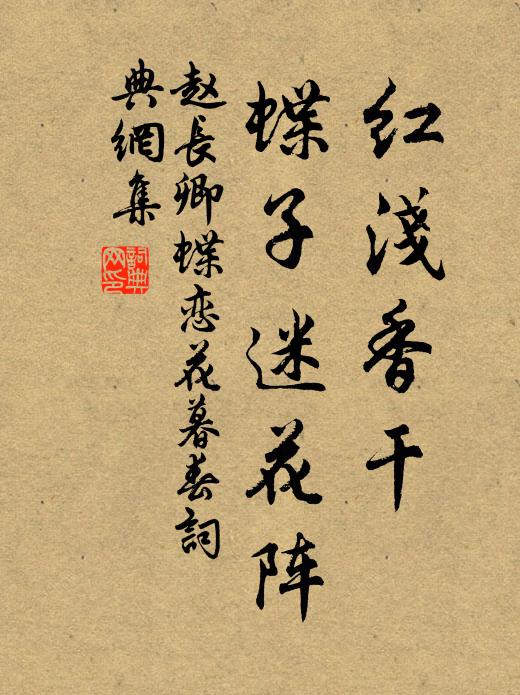 红淺香干
蝶子迷花阵
赵長卿蝶恋花暮春詞
典網集
詞典网印